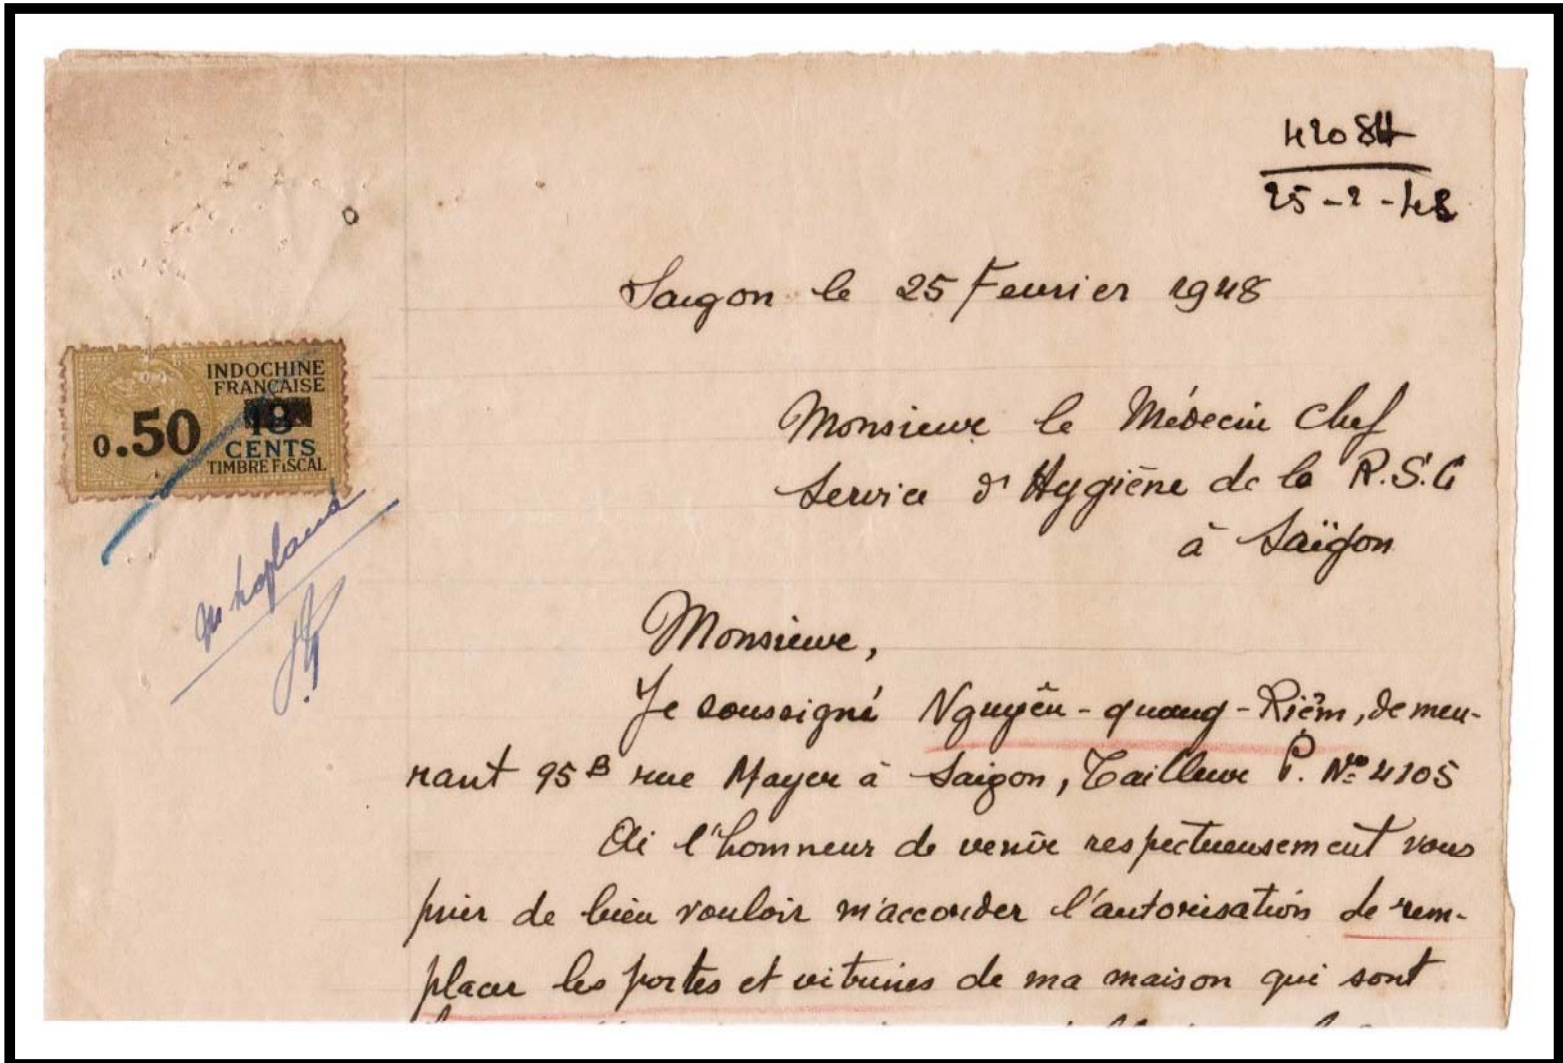 4208H
25-2-48
Saigon le 25 Fevrier 1948
INDOCHINE
FRANÇAISE
0.50 18
CENTS
TIMBRE FISCAL
Monsieur le Médecin Chef
Service d'Hygiène de la R.S.C
à Saïgon
Monsieur,
Je soussigné Nguyên-quang-Riêm, demeu-
rant 95B rue Mayer à Saigon, Tailleur P. No 4105
Ai l'homneur de venir respectueusement vous
prier de bien vouloir m'accorder l'autorisation de rem-
placer les portes et vitrines de ma maison qui sont